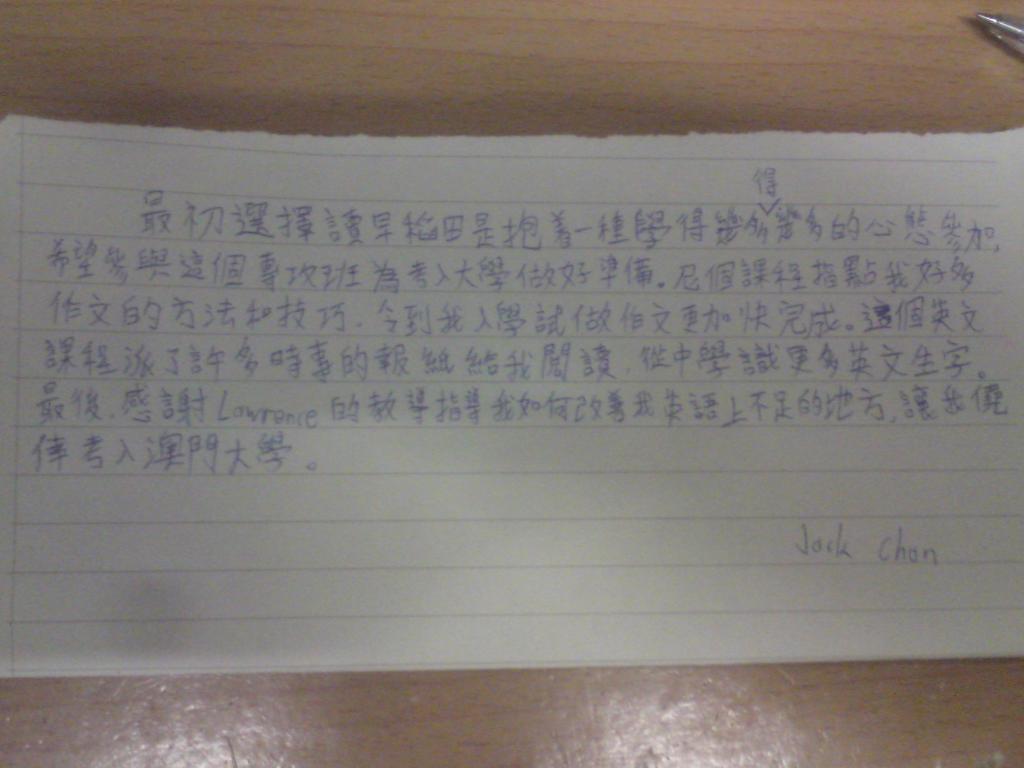 得
最初選擇讀早稻田是抱着一種學得幾多幾多的心態參加,
希望參與這個專攻班為考入大學做好準備。尼個課程指點我好多
作文的方法和技巧,令到我入學試做作文更加快完成。這個英文
課程派了許多時事的報紙給我閱讀,從中學識更多英文生字。
最後,感謝Lawrence的教導指導我如何改善我英語上不足的地方,讓我僥
倖考入澳門大學。
Jack Chan